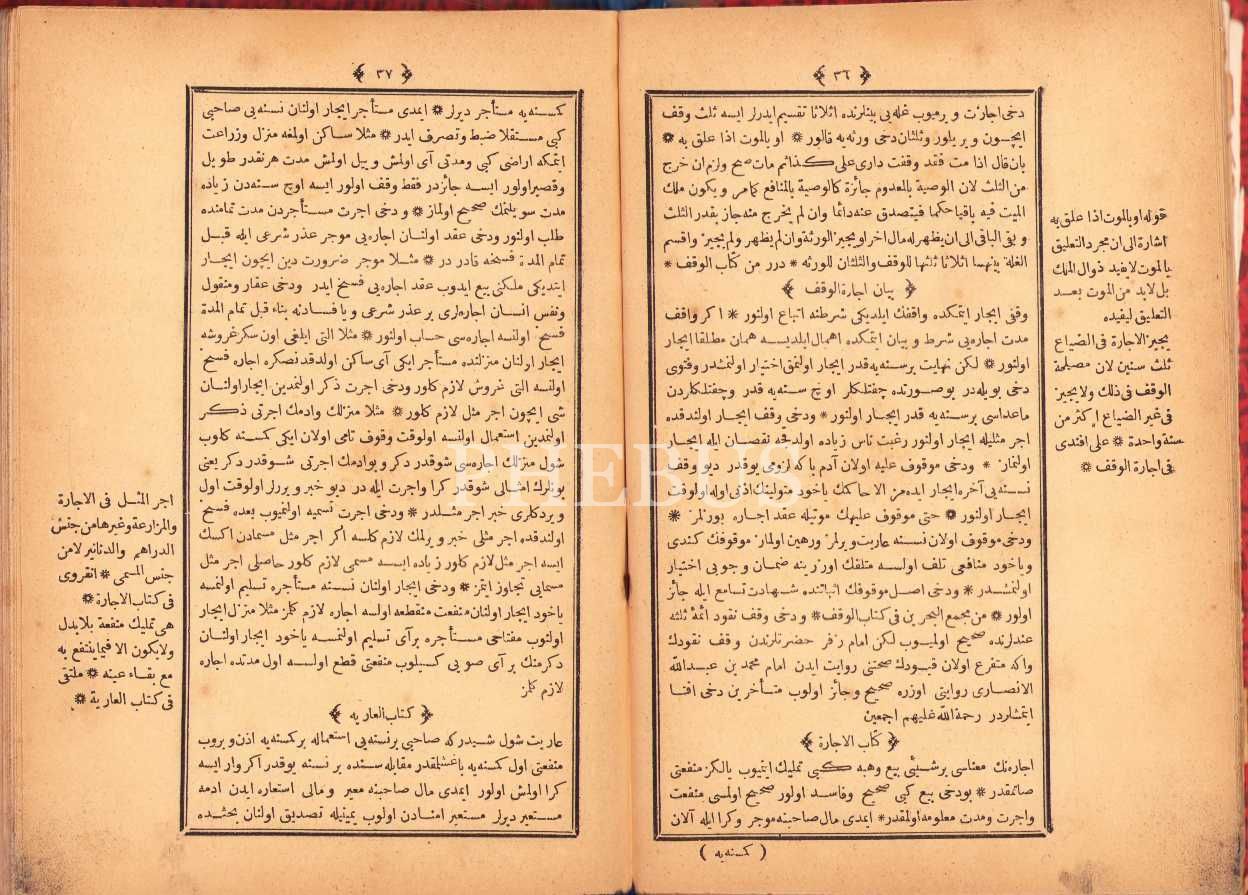 ﴿ ٣٦ ﴾
دخی اجازت ویرمیوب غله یی بینلرنده اثلاثا تقسیم ایدرلر ایسه ثلث وقف
ایچون ویریلور وثلثان دخی ورثه یه قالور * او بالموت اذا علق به *
بان قال اذا مت فقد وقفت داری علی کذا ثم مات صح ولزم ان خرج
من الثلث لان الوصیة بالمعدوم جائزة کالوصیة بالمنافع کامر ویکون ملك
المیت فیه باقیا حکما فیتصدق عنه دائما وان لم یخرج منه جاز بقدر الثلث
ویبقی الباقی الی ان یظهر له مال اخر او یجیز الورثة وان لم یظهر ولم یجیز واقسم
الغلة بینهما اثلاثا ثلثها للوقف والثلثان للورثه * درر من کتاب الوقف *
﴿ بیان اجارة الوقف ﴾
وقفی ایجار ایتمکده واقفك ایلدیکی شرطنه اتباع اولنور * اکر واقف
مدت اجاره یی شرط و بیان ایتمکده اهمال ایلدیسه همان مطلقا ایجار
اولنور * لکن نهایت برسنه یه قدر ایجار اولنمق اختیار اولنمشدر وفتوی
دخی بویله در بوصورتده چفتلکلر اوچ سنه یه قدر وچفتلکلردن
ماعداسی برسنه یه قدر ایجار اولنور * ودخی وقف ایجار اولندقده
اجر مثلیله ایجار اولنور رغبت ناس زیاده اولدقجه نقصان ایله ایجار
اولنماز * ودخی موقوف علیه اولان آدم یا که لزومی یوقدر دیو وقف
نسنه یی آخره ایجار ایده مز الا حاکمك یاخود متولینك اذنی اوله اولوقت
ایجار اولنور * حتی موقوف علیهك موتیله عقد اجاره بوزلمز *
ودخی موقوف اولان نسنه عاریت ویرلمز ورهین اولماز موقوفك کندی
ویاخود منافعی تلف اولسه متلفك اوزرینه ضمان وجوبی اختیار
اولنمشدر * ودخی اصل موقوفك اثباتنده شهادت تسامع ایله جائز
اولور * من مجمع البحرین فی کتاب الوقف * ودخی وقف نقود ائمۀ ثلثه
عندلرنده صحیح اولمیوب لکن امام زفر حضرتلرندن وقف نقودك
واکه متفرع اولان قیودك صحتنی روایت ایدن امام محمد بن عبدالله
الانصاری روایتی اوزره صحیح وجائز اولوب متأخرین دخی افتا
ایتمشلردر رحمة الله علیهم اجمعین
﴿ کتاب الاجارة ﴾
اجاره نك معناسی برشیئی بیع وهبه کبی تملیك ایتمیوب یالکز منفعتی
صاتمقدر * بودخی بیع کبی صحیح وفاسد اولور صحیح اولمسی منفعت
واجرت ومدت معلومه اولمقدر * ایمدی مال صاحبنه موجر وکرا ایله آلان
( کسنه یه )
قوله او بالموت اذا علق به
اشارة الی ان مجرد التعلیق
بالموت لا یفید زوال الملك
بل لابد من الموت بعد
التعلیق لیفیده
یجیز الاجارة فی الضیاع
ثلث سنین لان مصلحة
الوقف فی ذلك ولا یجیز
فی غیر الضیاع اکثر من
سنة واحدة * علی افندی
فی اجارة الوقف *
﴿ ٣٧ ﴾
کسنه یه مستأجر دیرلر * ایمدی مستأجر ایجار اولنان نسنه یی صاحبی
کبی مستقلا ضبط وتصرف ایدر * مثلا ساکن اولمغه منزل وزراعت
ایتمکه اراضی کبی ومدتی آی اولمش و ییل اولمش مدت هرنقدر طویل
وقصیر اولور ایسه جائزدر فقط وقف اولور ایسه اوچ سنه دن زیاده
مدت سویلتمك صحیح اولماز * ودخی اجرت مستأجردن مدت تمامنده
طلب اولنور ودخی عقد اولنان اجاره یی موجر عذر شرعی ایله قبل
تمام المدة فسخه قادر در * مثلا موجر ضرورت دین ایچون ایجار
ایتدیکی ملکنی بیع ایدوب عقد اجاره یی فسخ ایدر ودخی عقار ومنقول
ونفس انسان اجاره لری بر عذر شرعی ویا فسادنه بناء قبل تمام المدة
فسخ اولنسه اجاره سی حساب اولنور * مثلا التی ایلغی اون سکز غروشه
ایجار اولنان منزلنده مستأجر ایکی آی ساکن اولدقدنصکره اجاره فسخ
اولنسه التی غروش لازم کلور ودخی اجرت ذکر اولنمدین ایجار اولنان
شی ایچون اجر مثل لازم کلور * مثلا منزلك وادمك اجرتی ذکر
اولنمدین استعمال اولنسه اولوقت وقوف تامی اولان ایکی کسنه کلوب
شول منزلك اجاره سی شوقدر دکر و بوادمك اجرتی شوقدر دکر یعنی
بونلرك امثالی شوقدر کرا واجرت ایله در دیو خبر ویررلر اولوقت اول
ویردکلری خبر اجر مثلدر * ودخی اجرت تسمیه اولنمیوب بعده فسخ
اولندقده اجر مثلی خبر ویرلمك لازم کلسه اکر اجر مثل مسمادن اکسك
ایسه اجر مثل لازم کلور زیاده ایسه مسمی لازم کلور حاصلی اجر مثل
مسمایی تجاوز ایتمز * ودخی ایجار اولنان نسنه مستأجره تسلیم اولنمسه
یاخود ایجار اولنان منفعت منقطعه اولسه اجاره لازم کلمز مثلا منزل ایجار
اولنوب مفتاحی مستأجره برآی تسلیم اولنمسه یاخود ایجار اولنان
دکرمنك برآی صویی کسیلوب منفعتی قطع اولسه اول مدتده اجاره
لازم کلمز
﴿ کتاب العاریه ﴾
عاریت شول شیدرکه صاحبی برنسنه یی استعماله برکسنه یه اذن ویروب
منفعتی اول کسنه یه باغشلمقدر مقابله سنده بر نسنه یوقدر اکر وار ایسه
کرا اولمش اولور ایمدی مال صاحبنه معیر ومالی استعاره ایدن ادمه
مستعیر دیرلر مستعیر امنادن اولوب یمینیله تصدیق اولنان بحثده
اجر المثل فی الاجارة
والمزارعة وغیرها من جنس
الدراهم والدنانیر لا من
جنس المسمی * انقروی
فی کتاب الاجارة *
هی تملیك منفعة بلا بدل
ولا یکون الا فیما ینتفع به
مع بقاء عینه * ملتقی
فی کتاب العاریة *
PHEBUS